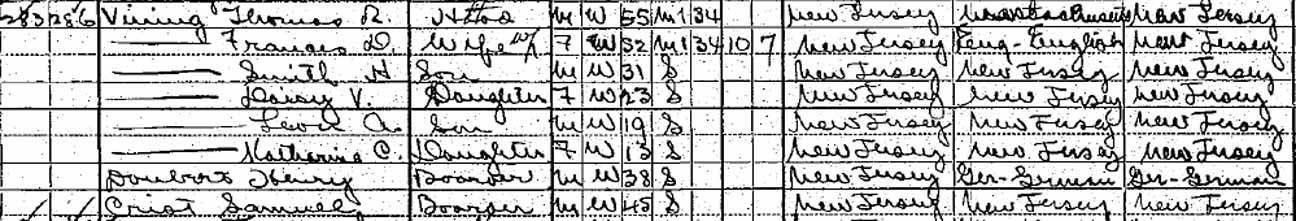 283 286 Vining Thomas R. Head M W 55 M1 34 New Jersey Massachusetts New Jersey
Frances D. Wife 7 W 52 M1 34 10 7 New Jersey Eng-English New Jersey
Smith H Son M W 31 S New Jersey New Jersey New Jersey
Daisy V. Daughter 7 W 23 S New Jersey New Jersey New Jersey
A. Son M W 19 S New Jersey New Jersey New Jersey
Katharine C. Daughter 7 W 13 S New Jersey New Jersey New Jersey
Henry Boarder M W 38 S New Jersey Ger-German Ger-German
Crist Samuel Boarder M W 45 S New Jersey New Jersey New Jersey